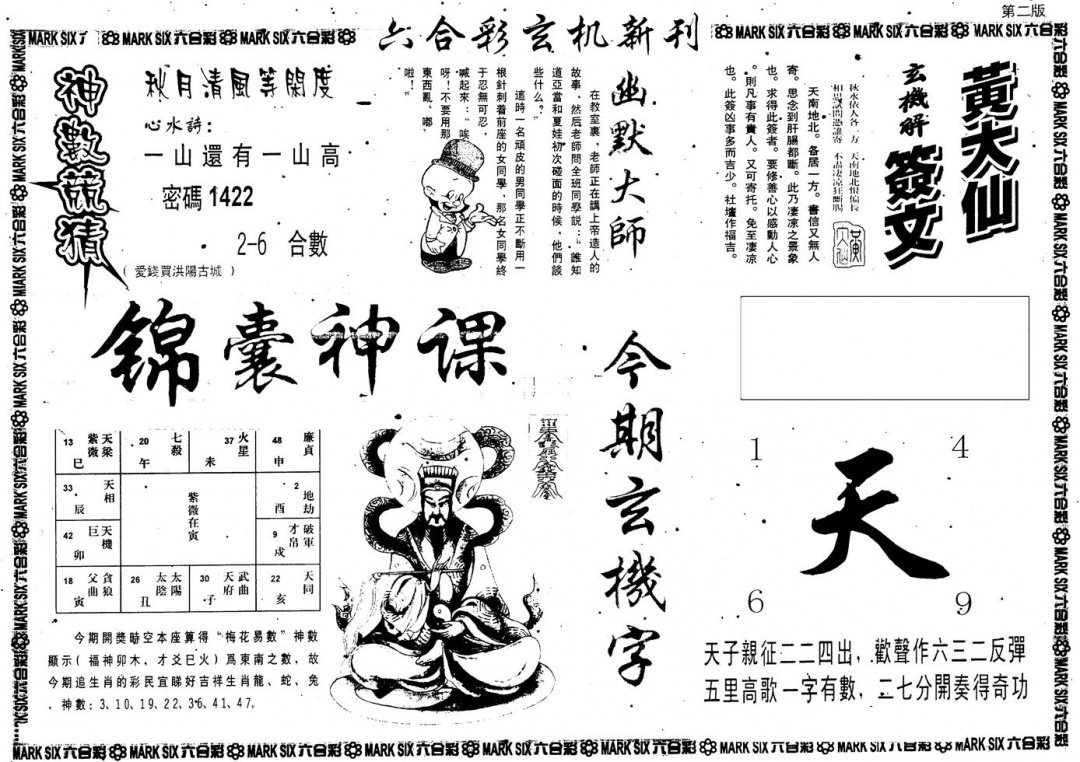 第二版
六合彩玄机新刊
MARK SIX 六合彩
神數荒猜
秋月清風等閑度
心水詩：
一山還有一山高
密碼 1422
2-6 合數
（愛錢買洪陽古城）
幽默大師
在教室裏，老師正在講上帝造人的
故事，然后老師問全班同學説：“誰知
道亞當和夏娃初次碰面的時候，他們談
些什么？”
這時一名頑皮的男同學正不斷用一
根針刺着前座的女同學，那名女同學終
于忍無可忍，
喊起來：“唉
呀！不要用那
東西亂，嘟
啦！”
黃大仙
簽文
玄機解
秋水依人各一方 天南地北恨偏長
相思試問憑誰寄 不盡凄凉狂斷腸
天南地北。各居一方。書信又無人
寄。思念到肝腸都斷。此乃凄凉之景象
也。求得此簽者。要修善心以感動人心
。則凡事有貴人。又可寄托。免至凄凉
也。此簽凶事多而吉少。社壇作福吉。
锦囊神课
13 紫微 天梁 巳
20 七殺 午
37 火星 未
48 廉貞 申
33 天相 辰
紫微在寅
2 地劫 酉
42 巨 天機 卯
9 才帛 破軍 戌
18 父曲 貪狼 寅
26 太陰 太陽 丑
30 天府 武曲 子
22 天同 亥
今期開獎時空本座算得“梅花易數”神數
顯示（福神卯木，才爻巳火）爲東南之數，故
今期追生肖的彩民宜睇好吉祥生肖龍、蛇、兔
。神數：3、10、19、22、36、41、47。
今期玄機字
1 4
天
6 9
天子親征二二四出，歡聲作六三二反彈
五里高歌一字有數，二七分開奏得奇功
MARK SIX 六合彩